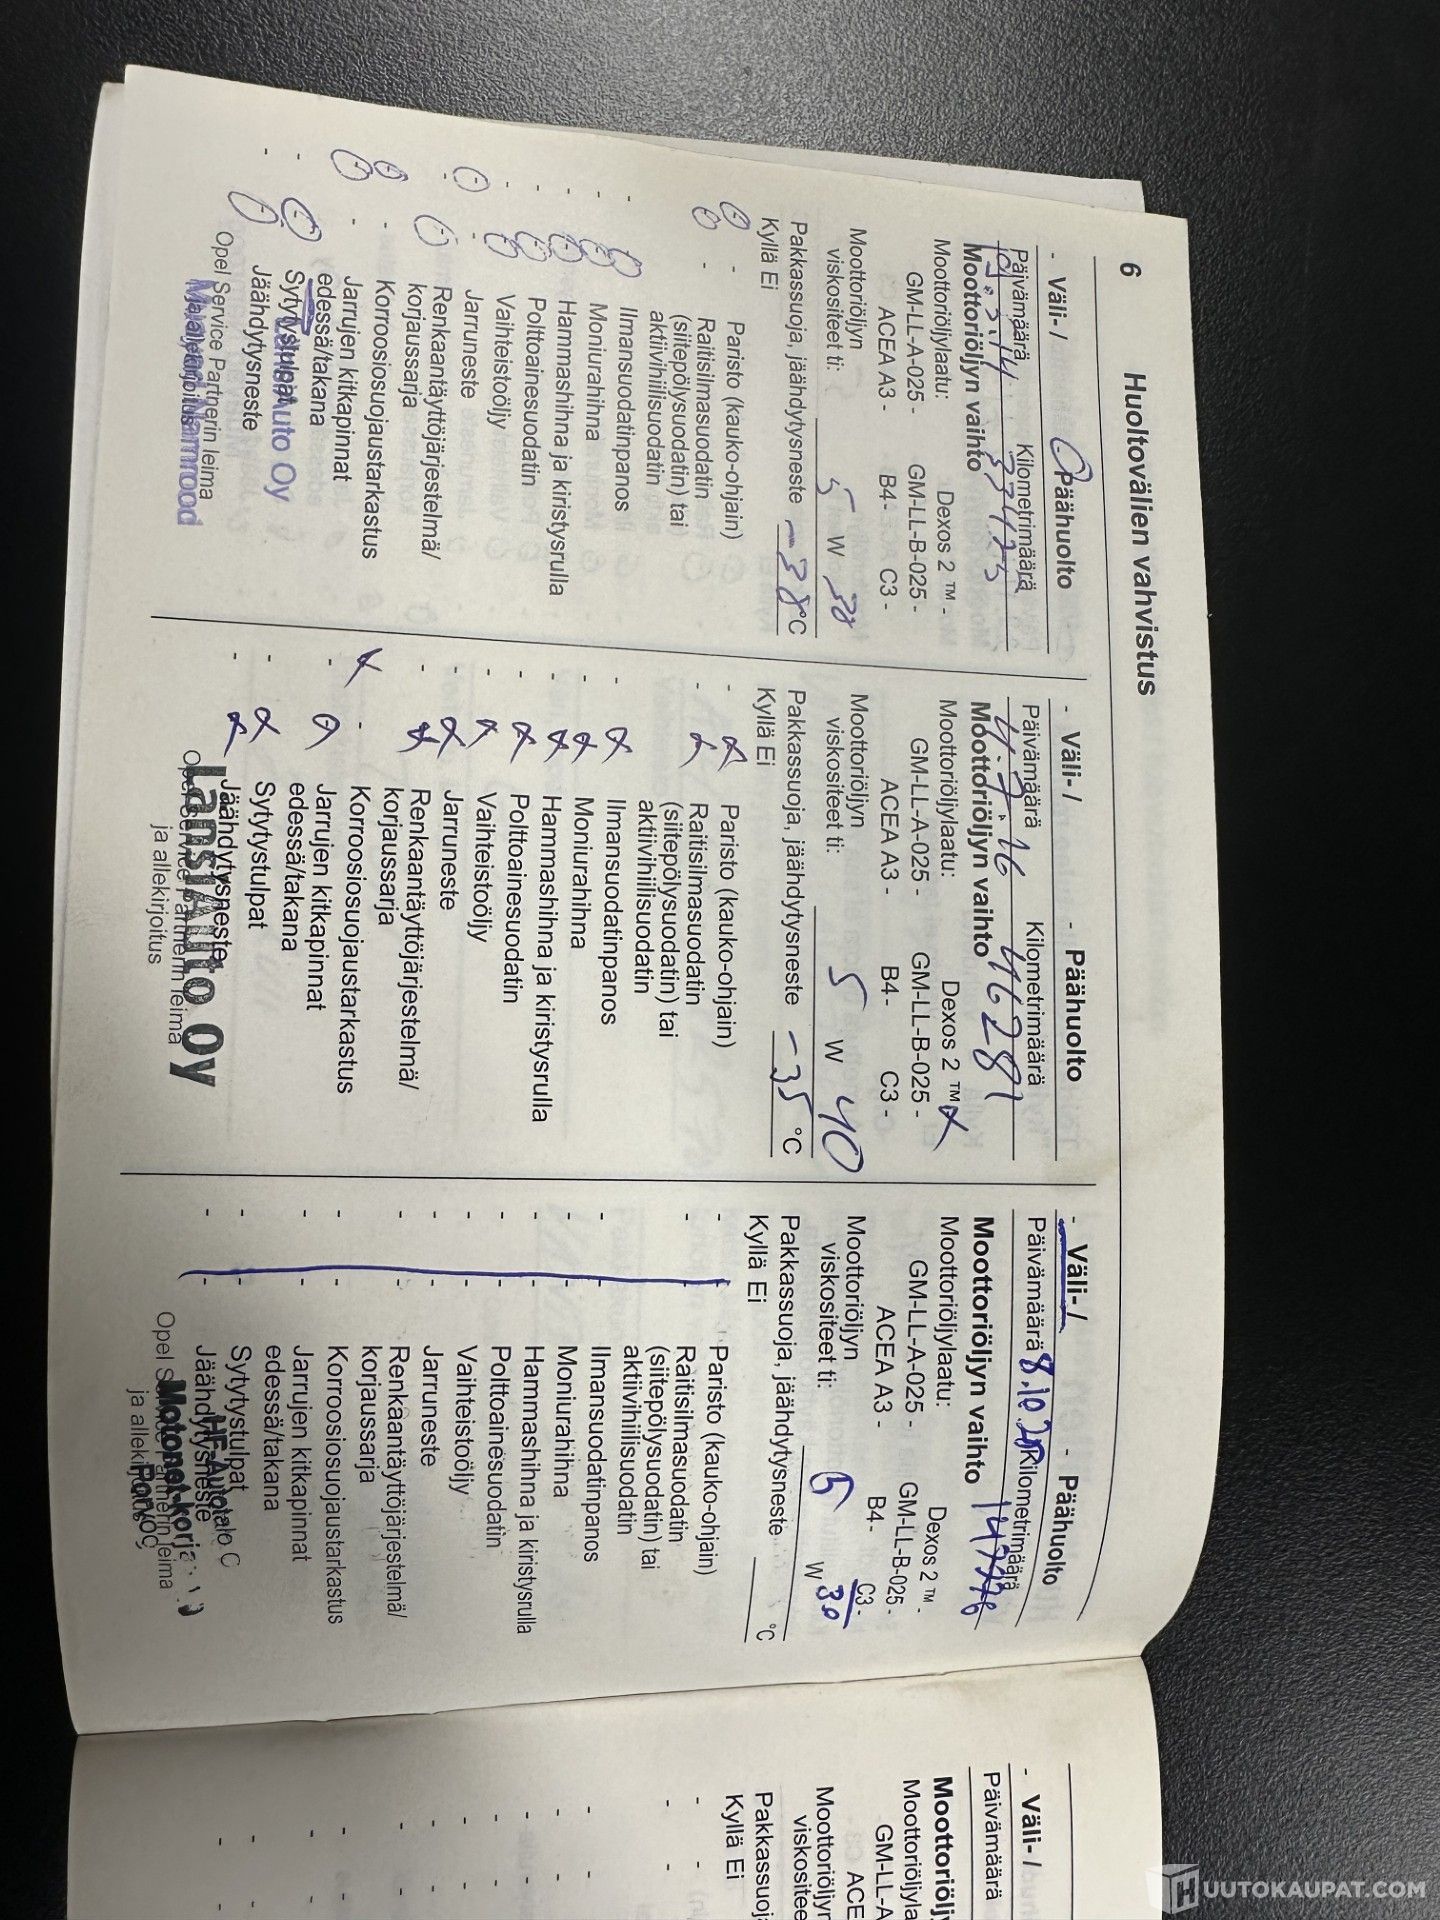 6
Huoltovälien vahvistus
- Väli- / Päähuolto
Päivämäärä Kilometrimäärä
Moottoriöljyn vaihto
Moottoriöljylaatu: Dexos 2 ™ -
GM-LL-A-025 - GM-LL-B-025 -
ACEA A3 - B4 - C3 -
Moottoriöljyn
viskositeet ti: 5 W 30
Pakkassuoja, jäähdytysneste -38 °C
Kyllä Ei
- Paristo (kauko-ohjain)
- Raitisilmasuodatin
(siitepölysuodatin) tai
aktiivihiilisuodatin
- Ilmansuodatinpanos
- Moniurahihna
- Hammashihna ja kiristysrulla
- Polttoainesuodatin
- Vaihteistoöljy
- Jarruneste
- Renkaantäyttöjärjestelmä/
korjaussarja
- Korroosiosuojaustarkastus
- Jarrujen kitkapinnat
edessä/takana
- Sytytystulpat
- Jäähdytysneste
Opel Service Partnerin leima
ja allekirjoitus
Auto Oy
Namrood
- Väli- / - Päähuolto
Päivämäärä Kilometrimäärä
4.7.16 46281
Moottoriöljyn vaihto
Moottoriöljylaatu: Dexos 2 ™ x
GM-LL-A-025 - GM-LL-B-025 -
ACEA A3 - B4 - C3 -
Moottoriöljyn
viskositeet ti: 5 W 40
Pakkassuoja, jäähdytysneste -35 °C
Kyllä Ei
- x Paristo (kauko-ohjain)
- x Raitisilmasuodatin
(siitepölysuodatin) tai
aktiivihiilisuodatin
- x Ilmansuodatinpanos
- x Moniurahihna
- x Hammashihna ja kiristysrulla
- x Polttoainesuodatin
- x Vaihteistoöljy
- x Jarruneste
- x Renkaantäyttöjärjestelmä/
korjaussarja
x - Korroosiosuojaustarkastus
- x Jarrujen kitkapinnat
edessä/takana
- x Sytytystulpat
- x Jäähdytysneste
Opel Service Partnerin leima
ja allekirjoitus
LänsiAuto Oy
- Väli- / - Päähuolto
Päivämäärä 8.10.20 Kilometrimäärä
Moottoriöljyn vaihto
Moottoriöljylaatu: Dexos 2 ™ -
GM-LL-A-025 - GM-LL-B-025 -
ACEA A3 - B4 - C3 -
Moottoriöljyn
viskositeet ti: 5 W 30
Pakkassuoja, jäähdytysneste °C
Kyllä Ei
- - Paristo (kauko-ohjain)
- - Raitisilmasuodatin
(siitepölysuodatin) tai
aktiivihiilisuodatin
- - Ilmansuodatinpanos
- - Moniurahihna
- - Hammashihna ja kiristysrulla
- - Polttoainesuodatin
- - Vaihteistoöljy
- - Jarruneste
- - Renkaantäyttöjärjestelmä/
korjaussarja
- - Korroosiosuojaustarkastus
- - Jarrujen kitkapinnat
edessä/takana
- - Sytytystulpat
- - Jäähdytysneste
HF-Autotalo
Motonet-korj
Porvoo
- Väli- /
Päivämäärä
Moottoriöljy
Moottoriöljyla
GM-LL-A
ACE
Moottoriöljyn
viskositee
Pakkassuoja
Kyllä Ei
HUUTOKAUPAT.COM